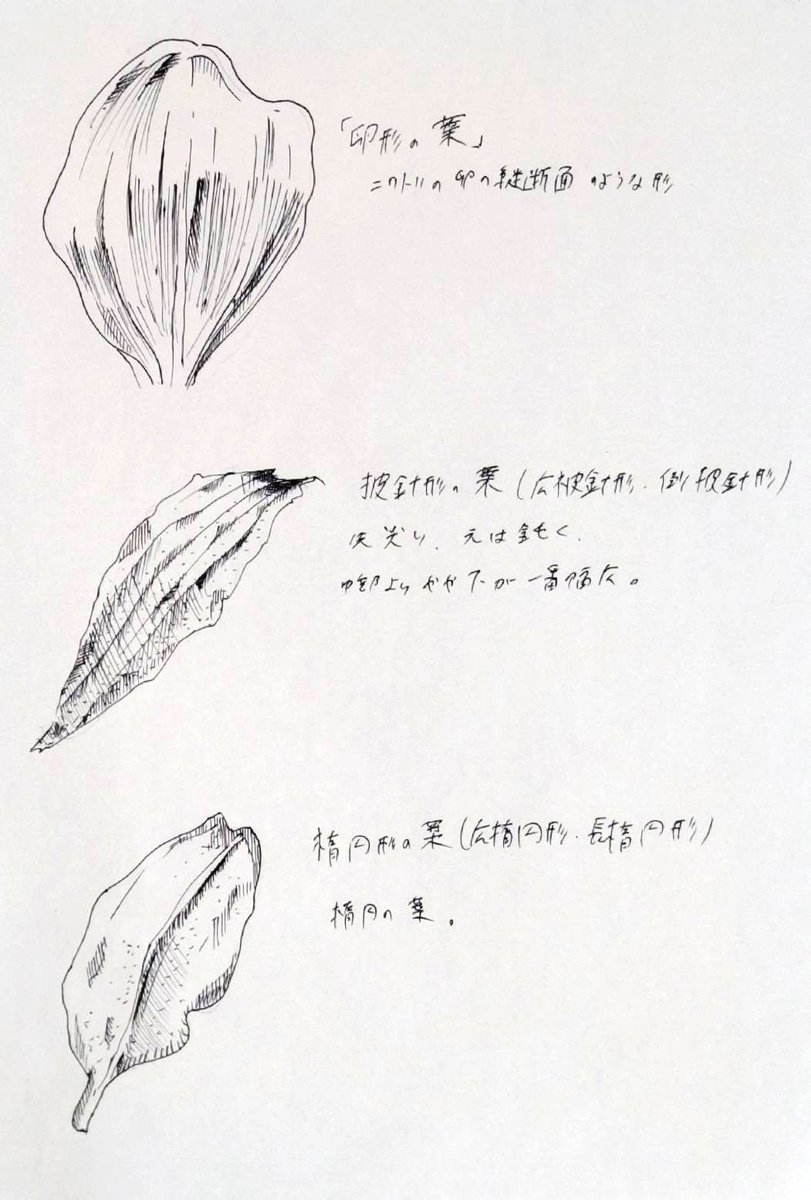 「卵形の葉」
ニワトリの卵の縦断面のような形
披針形の葉(広披針形・倒披針形)
先尖り、元は鈍く、
中部よりやや下が一番幅広。
楕円形の葉(広楕円形・長楕円形)
楕円の葉。